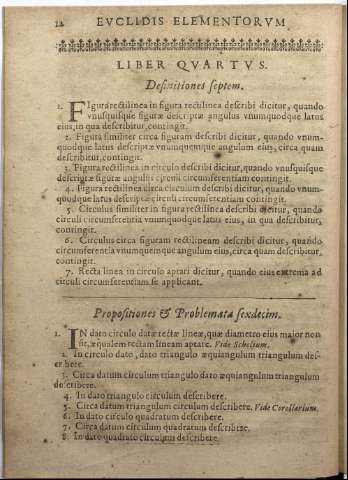 12 EVCLIDIS ELEMENTORVM
LIBER QVARTVS.
Definitiones septem.
1. FIgura rectilinea in figura rectilinea describi dicitur, quando
vnusquisque figuræ descriptæ angulus vnumquodque latus
eius, in qua describitur, contingit.
2. Figura similiter circa figuram describi dicitur, quando vnum-
quodque latus descriptæ vnumquemque angulum eius, circa quam
describitur, contingit.
3. Figura rectilinea in circulo describi dicitur, quando vnusquisque
descriptæ figuræ angulus circuli circumferentiam contingit.
4. Figura rectilinea circa circulum describi dicitur, quando vnum-
quodque latus descriptæ circuli circumferentiam contingit.
5. Circulus similiter in figura rectilinea describi dicitur, quando
circuli circumferentia vnumquodque latus eius, in qua describitur,
contingit.
6. Circulus circa figuram rectilineam describi dicitur, quando
circumferentia vnumquemque angulum eius, circa quam describitur,
contingit.
7. Recta linea in circulo aptari dicitur, quando eius extrema ad
circuli circumferentiam se applicant.
Propositiones & Problemata sexdecim.
1. IN dato circulo datæ rectæ lineæ, quæ diametro eius maior non
sit, æqualem rectam lineam aptare. Vide Scholium.
2. In circulo dato, dato triangulo æquiangulum triangulum des-
cribere.
3. Circa datum circulum triangulo dato æquiangulum triangulum
describere.
4. In dato triangulo circulum describere.
5. Circa datum triangulum circulum describere. Vide Corollarium.
6. In dato circulo quadratum describere.
7. Circa datum circulum quadratum describere.
8. In dato quadrato circulum describere.